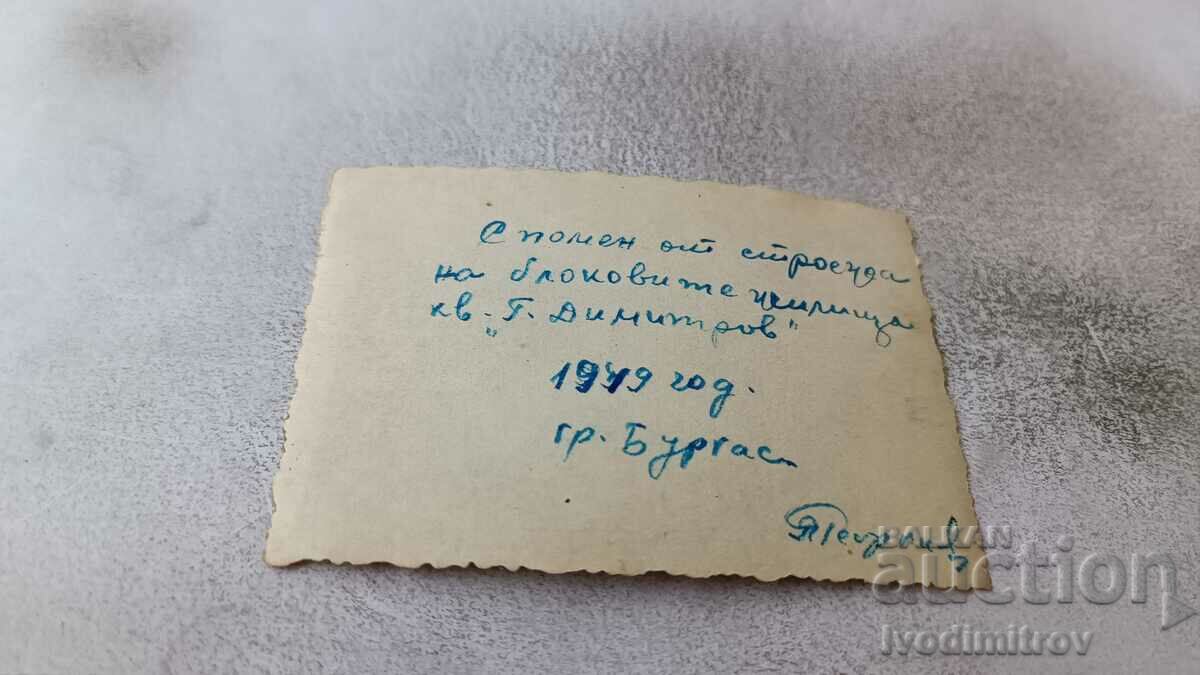 Спомен от строежа
на блоковите жилища
кв. „Г. Димитров"
1949 год.
гр. Бургас
BALKAN
auction
Ivodimitrov